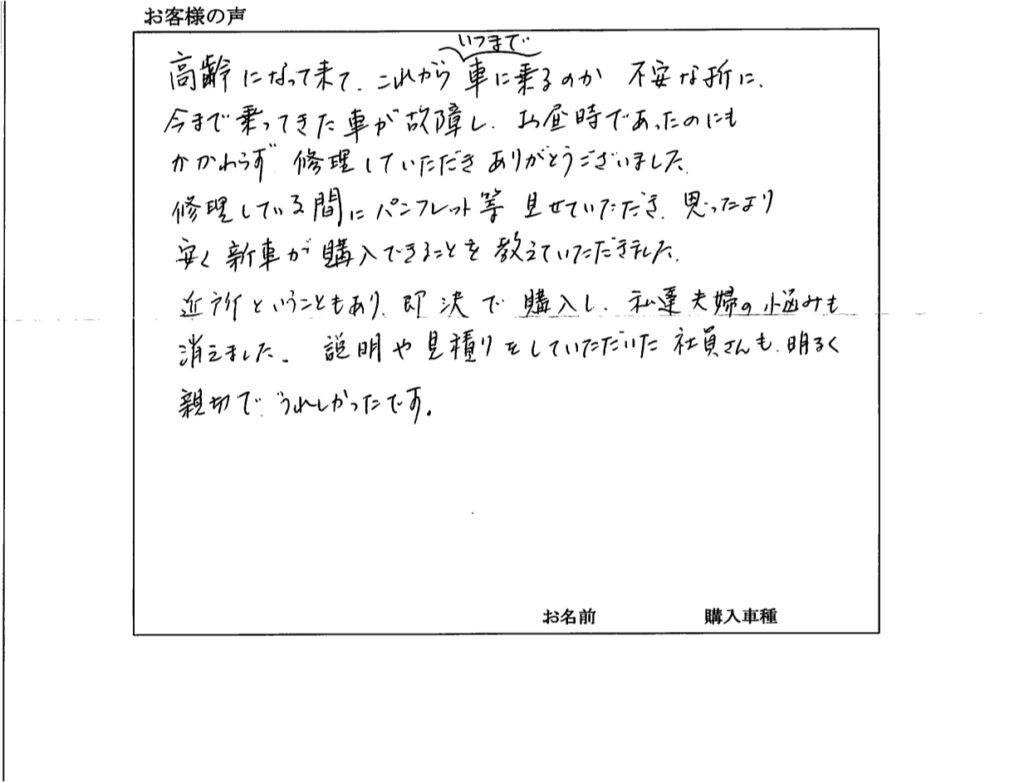 お客様の声
いつまで
高齢になって来て、これから車に乗るのか 不安な折に、
今まで乗ってきた車が故障し、お昼時であったのにも
かかわらず 修理していただきありがとうございました。
修理している間にパンフレット等 見せていただき、思ったより
安く新車が購入できることを教えていただきました。
近所ということもあり、即決で購入し、私達夫婦の悩みも
消えました。 説明や見積りをしていただいた社員さんも、明るく
親切で、うれしかったです。
お名前 購入車種